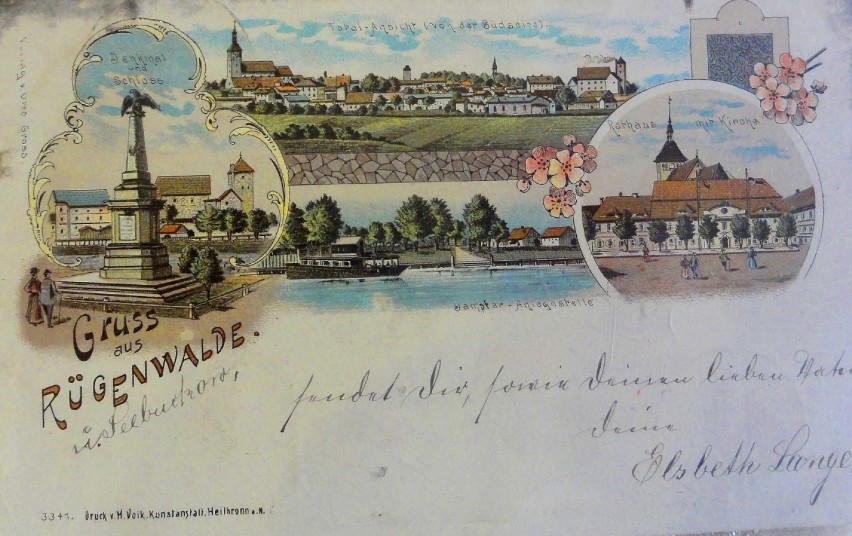 Total-Ansicht (von der Südseite).
Denkmal
und
Schloss.
Rathaus mit Kirche
Dampfer-Anlegestelle
Gruss
aus
RÜGENWALDE.
u. Seebuckow,
sendet Dir, sowie Deinen lieben Vater
Deine
Elsbeth Lange
3341. Druck v. M. Volk, Kunstanstalt, Heilbronn a. N.